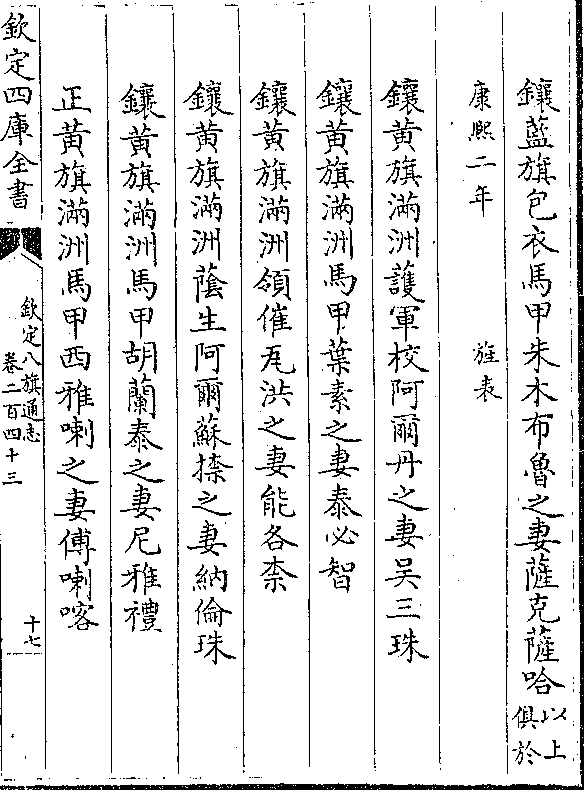 鑲藍旗包衣馬甲朱木布魯之妻薩克薩哈以上俱於
康熙二年　　旌表
鑲黃旗滿洲護軍校阿爾丹之妻吴三珠
鑲黃旗滿洲馬甲葉素之妻泰必智
鑲黃旗滿洲領催瓦洪之妻能各柰
鑲黃旗滿洲蔭生阿爾蘇捺之妻納倫珠
鑲黃旗滿洲馬甲胡蘭泰之妻尼雅禮
正黃旗滿洲馬甲西雅喇之妻傅喇喀
欽定四庫全書
欽定八旗通志
卷二百四十三
十七